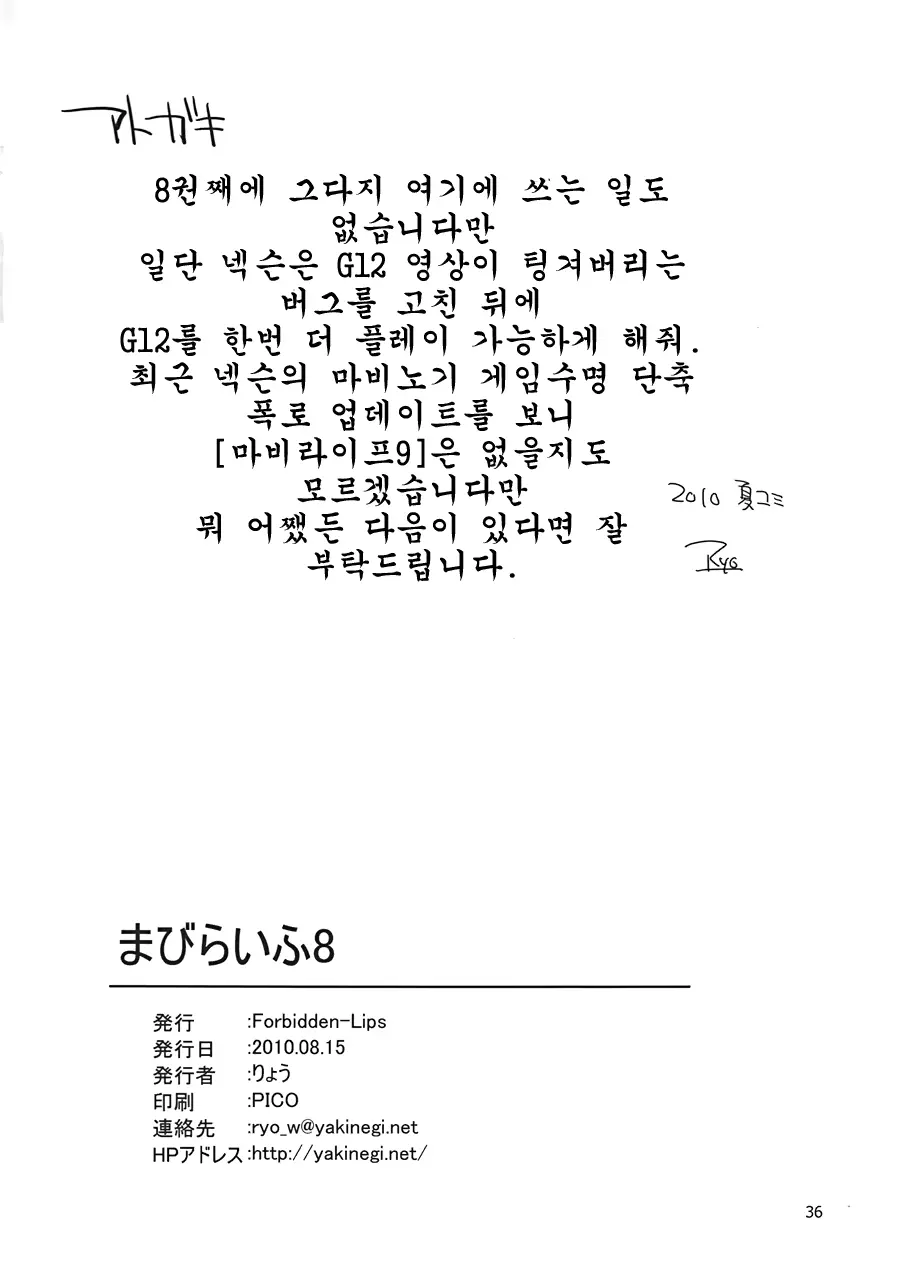 アトガキ
8권째에 그다지 여기에 쓰는 일도
없습니다만
일단 넥슨은 G12 영상이 팅겨버리는
버그를 고친 뒤에
G12를 한번 더 플레이 가능하게 해줘.
최근 넥슨의 마비노기 게임수명 단축
폭로 업데이트를 보니
[마비라이프9]은 없을지도
모르겠습니다만
뭐 어쨌든 다음이 있다면 잘
부탁드립니다.
2010 夏コミ
Ryo
まびらいふ8
発行 :Forbidden-Lips
発行日 :2010.08.15
発行者 :りょう
印刷 :PICO
連絡先 :ryo_w@yakinegi.net
HPアドレス :http://yakinegi.net/
36